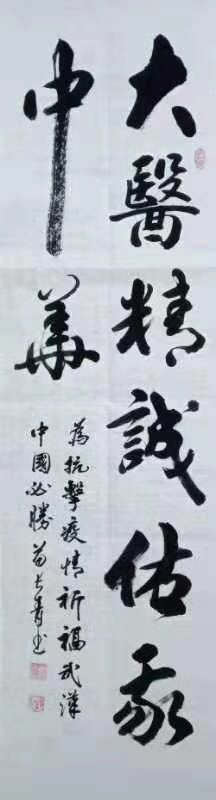 大醫精誠佑我
中華
為抗擊疫情祈福武漢
中國必勝 青书